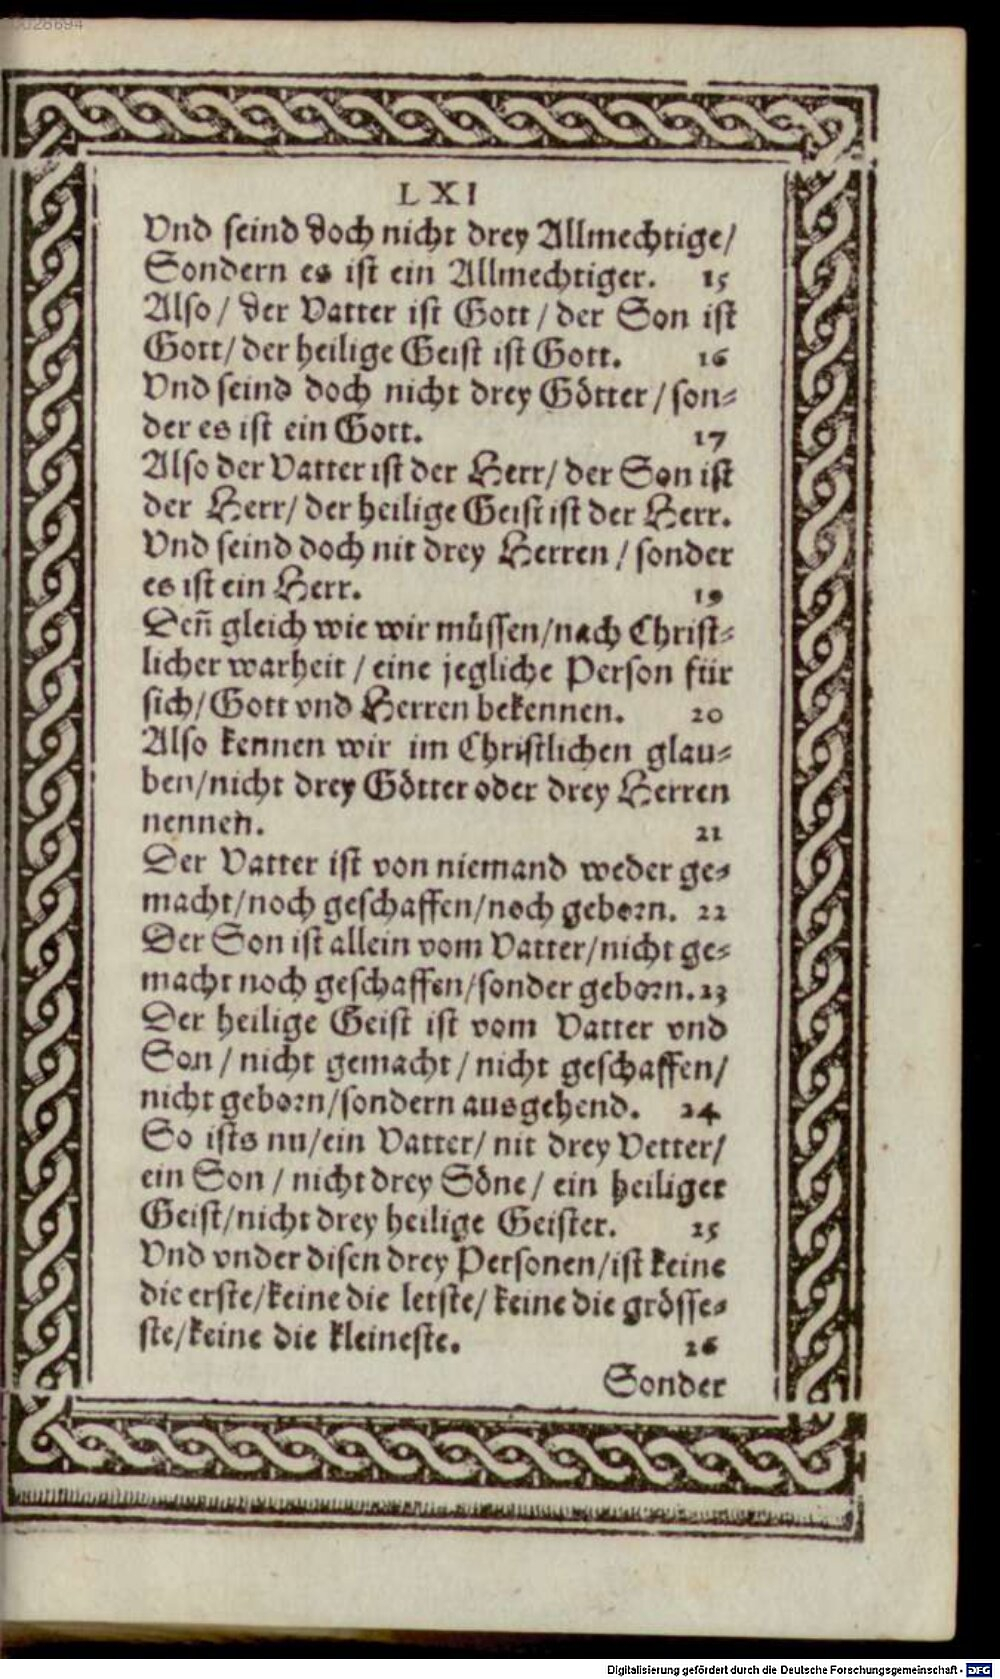 LXI
Vnd seind doch nicht drey Allmechtige/
Sondern es ist ein Allmechtiger. 15
Also/ der Vatter ist Gott/ der Son ist
Gott/ der heilige Geist ist Gott. 16
Vnd seind doch nicht drey Götter/ son⸗
der es ist ein Gott. 17
Also der Vatter ist der Herr/ der Son ist
der Herr/ der heilige Geist ist der Herr.
Vnd seind doch nit drey Herren/ sonder
es ist ein Herr. 19
Deñ gleich wie wir müssen/nach Christ⸗
licher warheit/ eine jegliche Person für
sich/ Gott vnd Herren bekennen. 20
Also kennen wir im Christlichen glau⸗
ben/nicht drey Götter oder drey Herren
nennen. 21
Der Vatter ist von niemand weder ge⸗
macht/noch geschaffen/noch geborn. 22
Der Son ist allein vom Vatter/nicht ge⸗
macht noch geschaffen/sonder geborn. 23
Der heilige Geist ist vom Vatter vnd
Son/ nicht gemacht/ nicht geschaffen/
nicht geborn/sondern ausgehend. 24
So ists nu/ein Vatter/ nit drey Vetter/
ein Son/ nicht drey Söne/ ein heiliger
Geist/nicht drey heilige Geister. 25
Vnd vnder disen drey Personen/ist keine
die erste/keine die letste/ keine die grösse⸗
ste/keine die kleineste. 26
Sonder
Digitalisierung gefördert durch die Deutsche Forschungsgemeinschaft - DFG